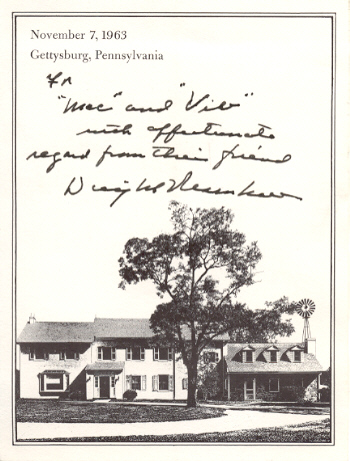 November 7, 1963
Gettysburg, Pennsylvania
For
"Mac" and "Viv"
with affectionate
regard from their friend
Dwight Eisenhower